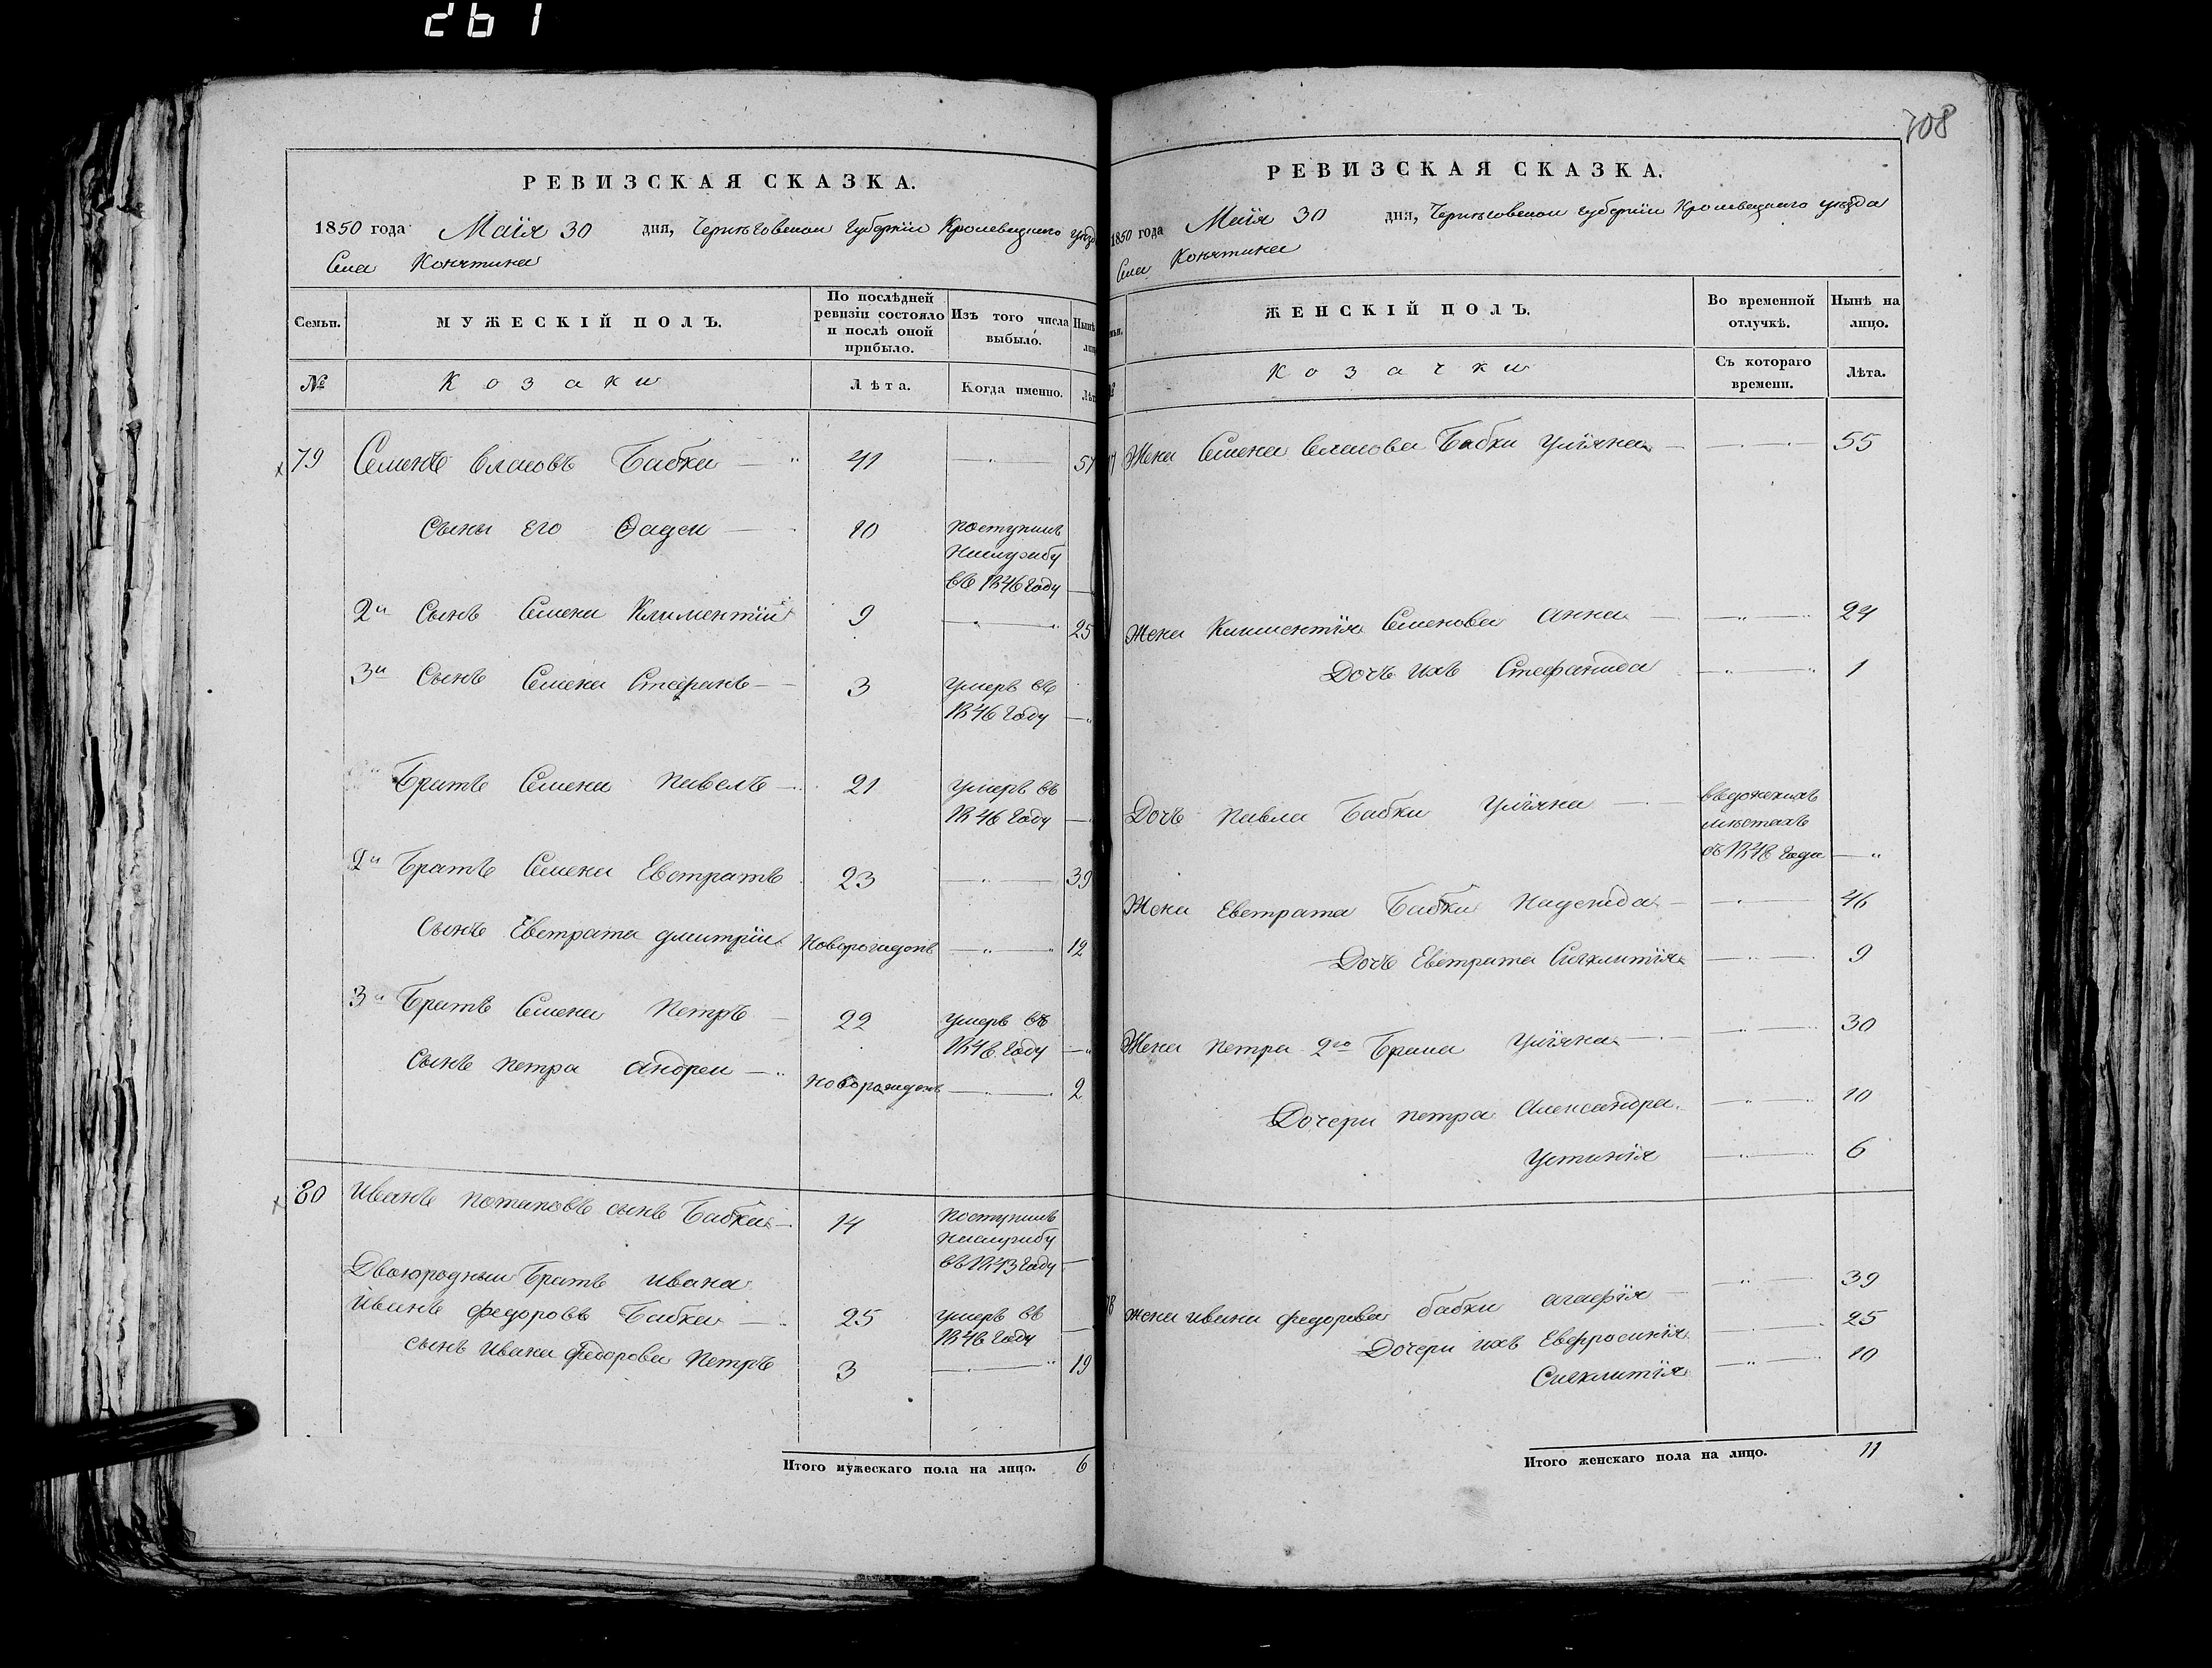 261
РЕВИЗСКАЯ СКАЗКА.
1850 года Маія 30 дня, Черниговской Губерніи Кролевецкаго уѣзд
Села Конятина
Семьи.
МУЖЕСКІЙ ПОЛЪ.
По послѣдней ревизіи состояло и послѣ оной прибыло.
Изъ того числа выбыло.
Нынѣ
лиц
№
Козаки
Лѣта.
Когда именно.
Лѣт
79 Семенъ Власовъ Бабка 41 57
Сыны его Фадеи 10 поступилъ
наслужбу
въ 1846 Году
2й Сынъ Семена Климентіи 9 25
3й Сынъ Семена Стефанъ 3 умеръ въ
1846 Году
Братъ Семена Павелъ 21 умеръ въ
1846 Году
2й Братъ Семена Евстратъ 23 39
Сынъ Евстрата Дмитріи 12
3й Братъ Семена Петръ 22 умеръ въ
1848 Году
Сынъ Петра Андреи 2
80 Иванъ Потаповъ сынъ Бабка 14 Поступилъ
наслужбу
въ 1843 Году
Двоюродный Братъ Ивана
Иванъ Федоровъ Бабка 25 умеръ въ
1848 Году
Сынъ Ивана Федорова Петръ 3 19
Итого мужескаго пола на лицо. 6
708
РЕВИЗСКАЯ СКАЗКА.
1850 года Маія 30 дня, Черниговской губерніи Кролевецкаго уѣзда
Села Конятина
ЖЕНСКІЙ ПОЛЪ.
Во временной отлучкѣ.
Нынѣ на лицо.
Козачки
Съ котораго времени.
Лѣта.
Жена Семена Власова Бабки Уліяна 55
Жена Климентія Семенова Анна 24
Дочь ихъ Стефанида 1
Дочь Павла Бабки Уліяна
мѣстахъ
съ 1848 Года
Жена Евстрата Бабки Надежда 46
Дочь Евстрата Сиклитія 9
Жена Петра 2го Брата Уліяна 30
Дочери Петра Александра 10
Устинія 6
78 Жена Ивана Федорова Бабки Агафія 39
Дочери ихъ Евфросинія 25
Сиклитія 10
Итого женскаго пола на лицо. 11